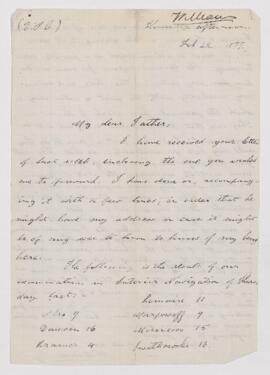 William
afternoon
Feb 22
My dear Father,
I have received your letter
of last week, enclosing the one you wished
me to forward. I have done so, accompany-
ing it with a few lines, in order that he
might have my address in case it might
be of any use to him to know of my being
here.
The following is the result of our
examination in Interior Navigation of Thurs-
day last:
9 Lemoine 11
Dawson 16 15
4 13